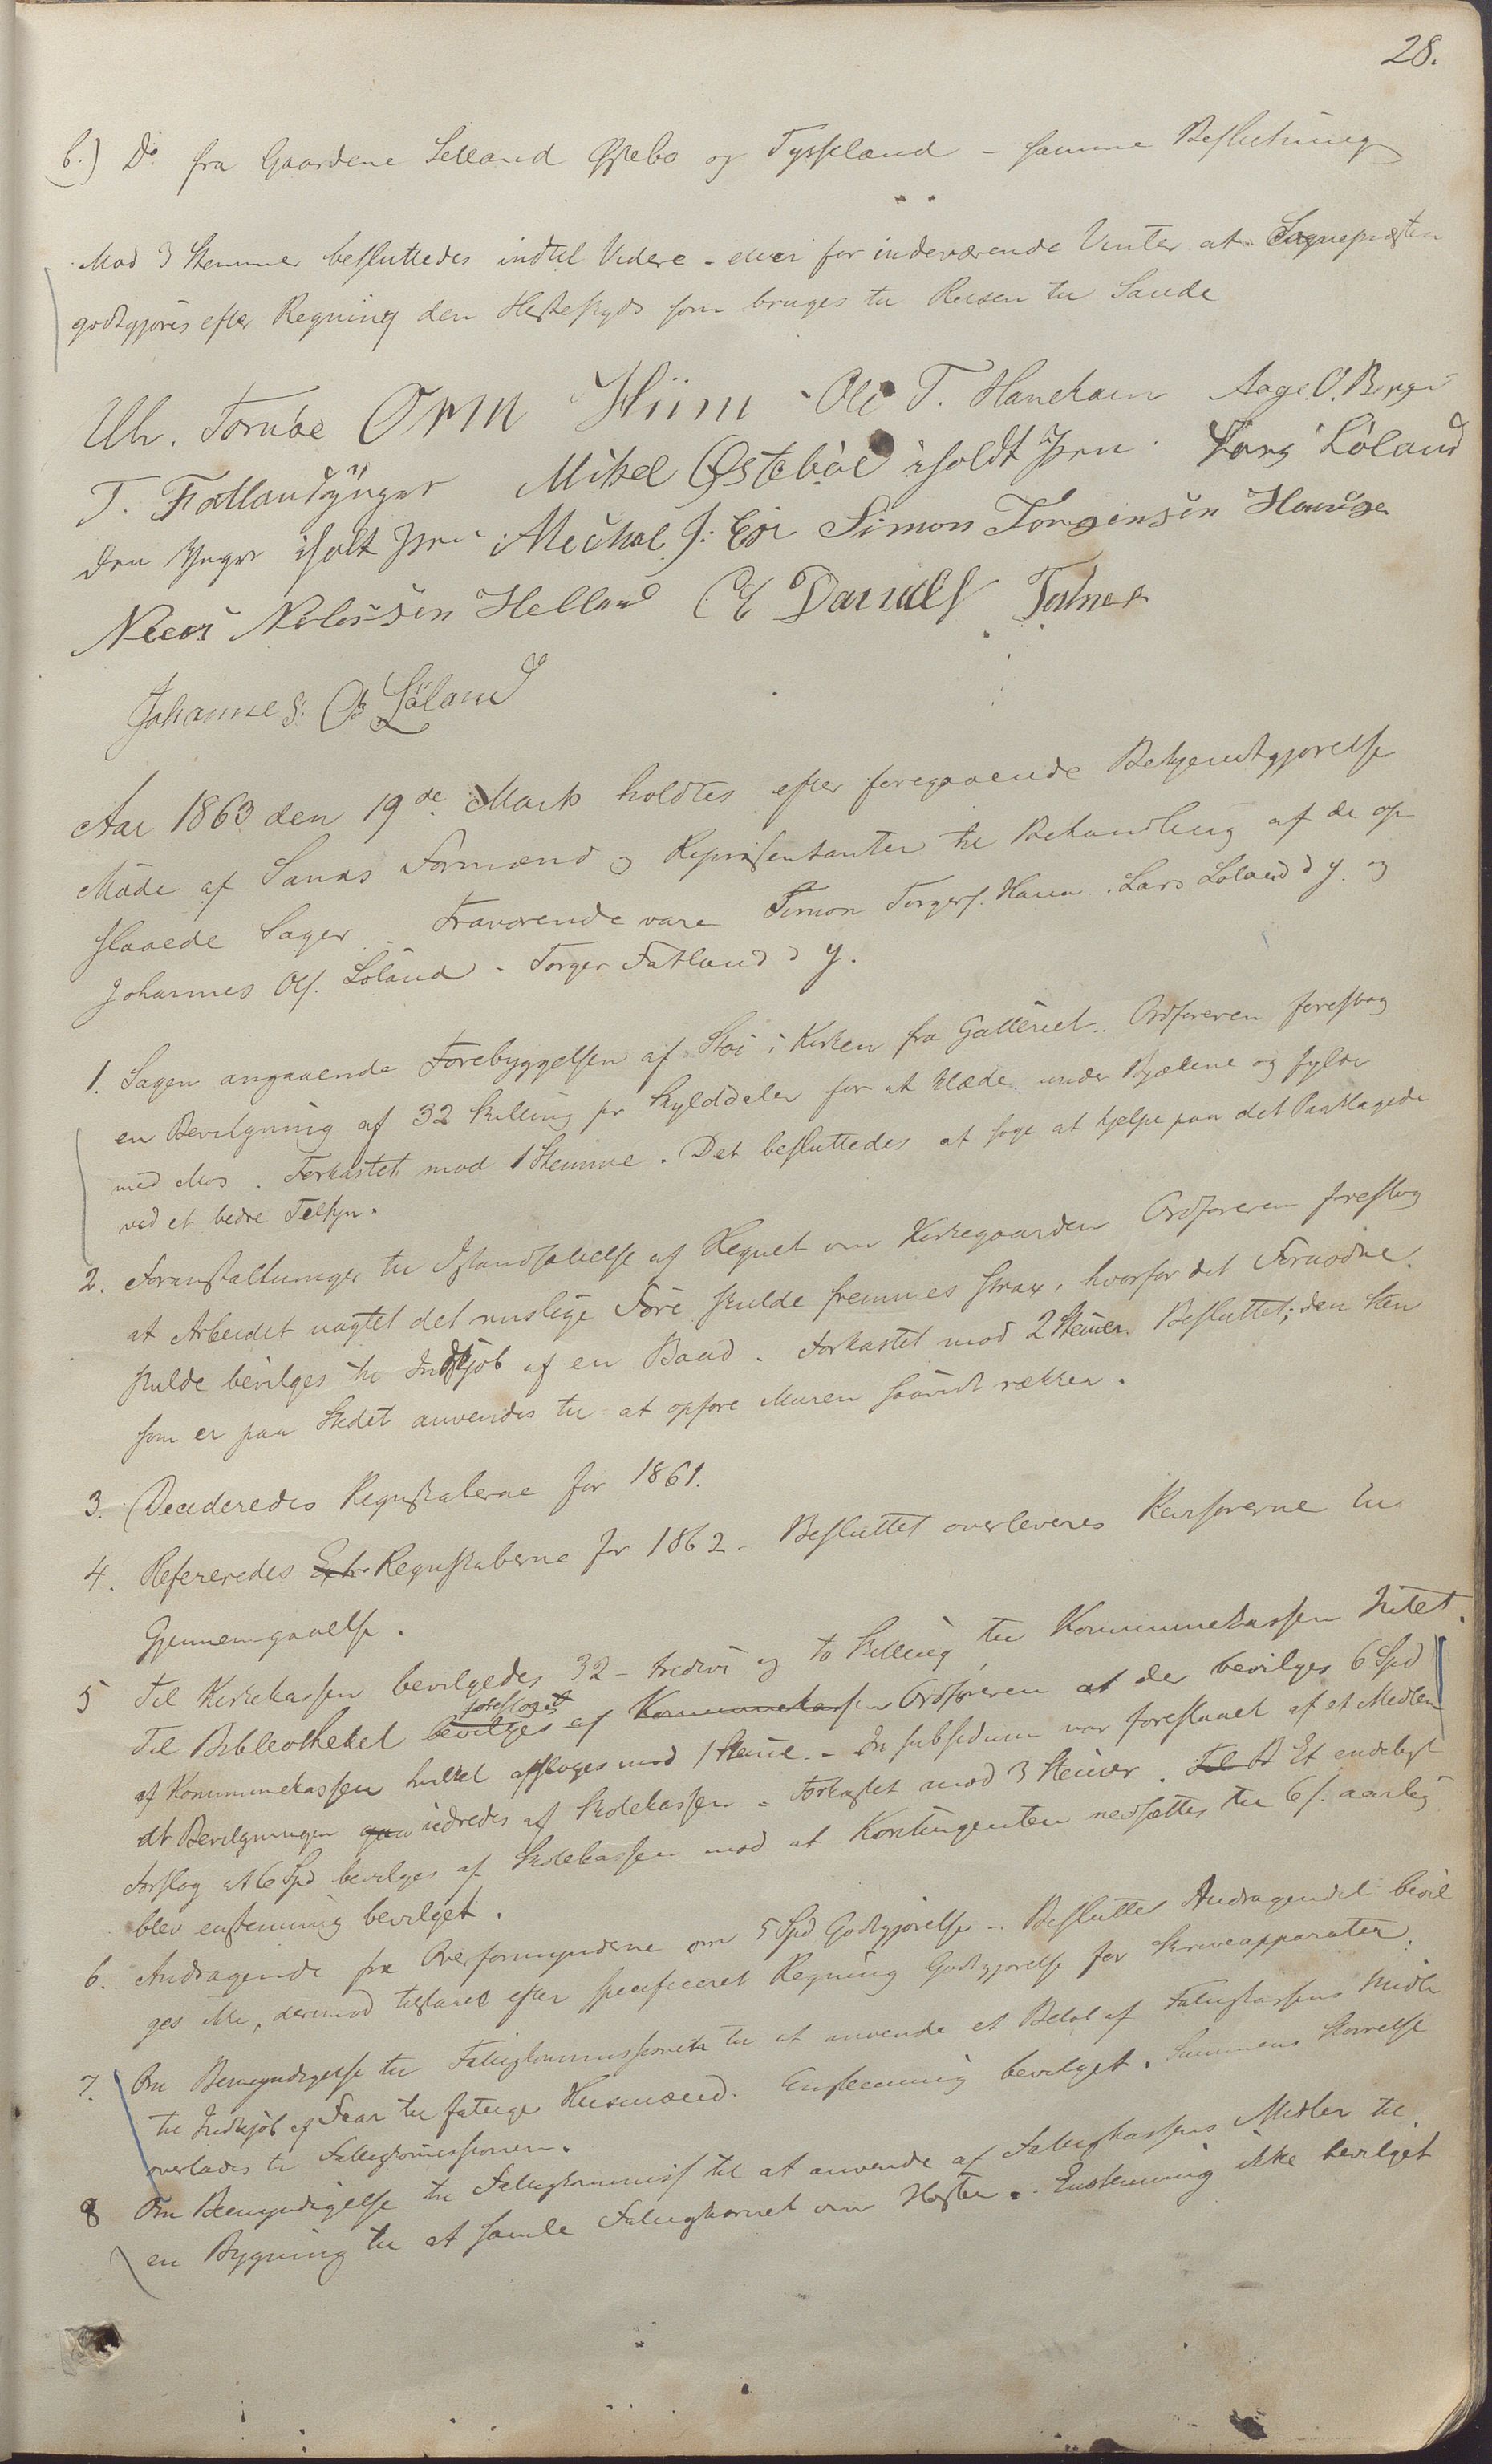 28.
6.) Do fra Gaardene Selland Østebø og Tysseland - samme Beslutning
Mod 3 Stemmer besluttedes indtil Videre - eller for indeværende Vinter at Sognepræsten
godtgjøres efter Regning den Hesteskyds som bruges til Reisen til Sande
Ul. Tornøe Orm Hiim Ole T. Hanekam Aage O. Berge
T. Fatland ynger Mikel Østebøe iholdt Pen Lars Løland
den Ynger iholt Pen Michal J: Eje Simon Torgersen Hauge
Neels Nelessen Helland O Daniels Tednes
Johannes. O Løland
Aar 1863 den 19de Marts holdtes efter foregaaende Bekjendtgjørelse
Møde af Sands Formænd og Repræsentanter til Behandling af de op
slaaede Sager. Fraværende vare Simon Torgers. Haua. Lars Løland d y. og
Johannes Ols. Løland - Torger Fatland d y.
1. Sagen angaaende Forebyggelsen af Støi i Kirken fra Galleriet. Ordføreren foreslog
en Bevilgning af 32 Skilling pr Skylddaler for at klæde under Bjælkene og fylde
med Mos. Forkastet mod 1 Stemme. Det besluttedes at søge at hjelpe paa det Paaklagede
ved et bedre Tilsyn.
2. Foranstaltninger til Istandsættelse af Hegnet om Kirkegaarden Ordføreren foreslog
at Arbeidet uagtet det uuslige Føre skulde fremmes strax, hvorfor det Fornødne
skulde bevilges til Indkjøb af en Baad. Forkastet mod 2 Stemer. Besluttet; den Sten
som er paa Stedet anvendes til at opføre Muren saavidt rækker.
3. Decideredes Regnskaberne for 1861.
4. Refereredes Extr Regnskaberne for 1862 - Besluttet overleveres Revisorerne til
Gjennemgaaelse.
5 Til Kirkekassen bevilgedes 32 - tredive og to Skilling til Kommunekassen Intet.
Til Bibliotheket bevilges foresloges af Kommunekassen Ordføreren at der bevilges 6 Spd
af Kommunekassen hvilket afsloges mod 1 Steme. - In subsidium var foreslaaet af et Medlem
at Bevilgningen udredes af Skolekassen - Forkastet mod 3 Stemer. Et endeligt
Forslag at 6 Spd bevilges af Skolekassen mod at Kontingenten nedsættes til 6 s. aarlig
blev enstemmig bevilget.
6. Andragende fra Overformynderne om 5 Spd Godtgjørelse - Besluttet Andragendet bevil
ges ikke, derimod tilstaaes efter specificeret Regning Godtgjørelse for Skriveapparater.
7. Om Bemyndigelse til Fatigkommissionen til at anvende et Beløb af Fatigkassens Midler
til Indkjøb af Saar til fatige Husmænd. Enstemmig bevilget. Summens Størrelse
overlades til Fatigkomissionen.
8 Om Bemyndigelse til Fatigkommiss til at anvende af Fatigkassens Midler til
en Bygning til at samle Fatigkornet om Høsten. Enstemmig ikke bevilget